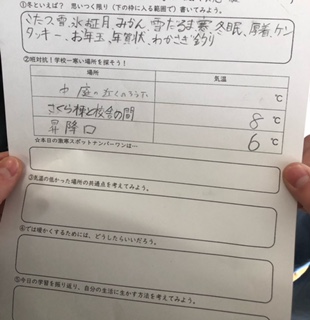 ①冬といえば？ 思いつく限り（下の枠に入る範囲で）書いてみよう。
こたつ、雪、氷、正月、みかん、雪だるま、寒、冬眠、厚着、ケン
タッキー、お年玉、年賀状、わかさぎ釣り
②班対抗！学校一寒い場所を探そう！
場所 気温
中庭の近くの ℃
さくら棟と校舎の間 8℃
昇降口 6℃
☆本日の激寒スポットナンバーワンは…
③気温の低かった場所の共通点を考えてみよう。
④では暖かくするためには、どうしたらいいだろう。
⑤今日の学習を振り返り、自分の生活に生かす方法を考えてみよう。